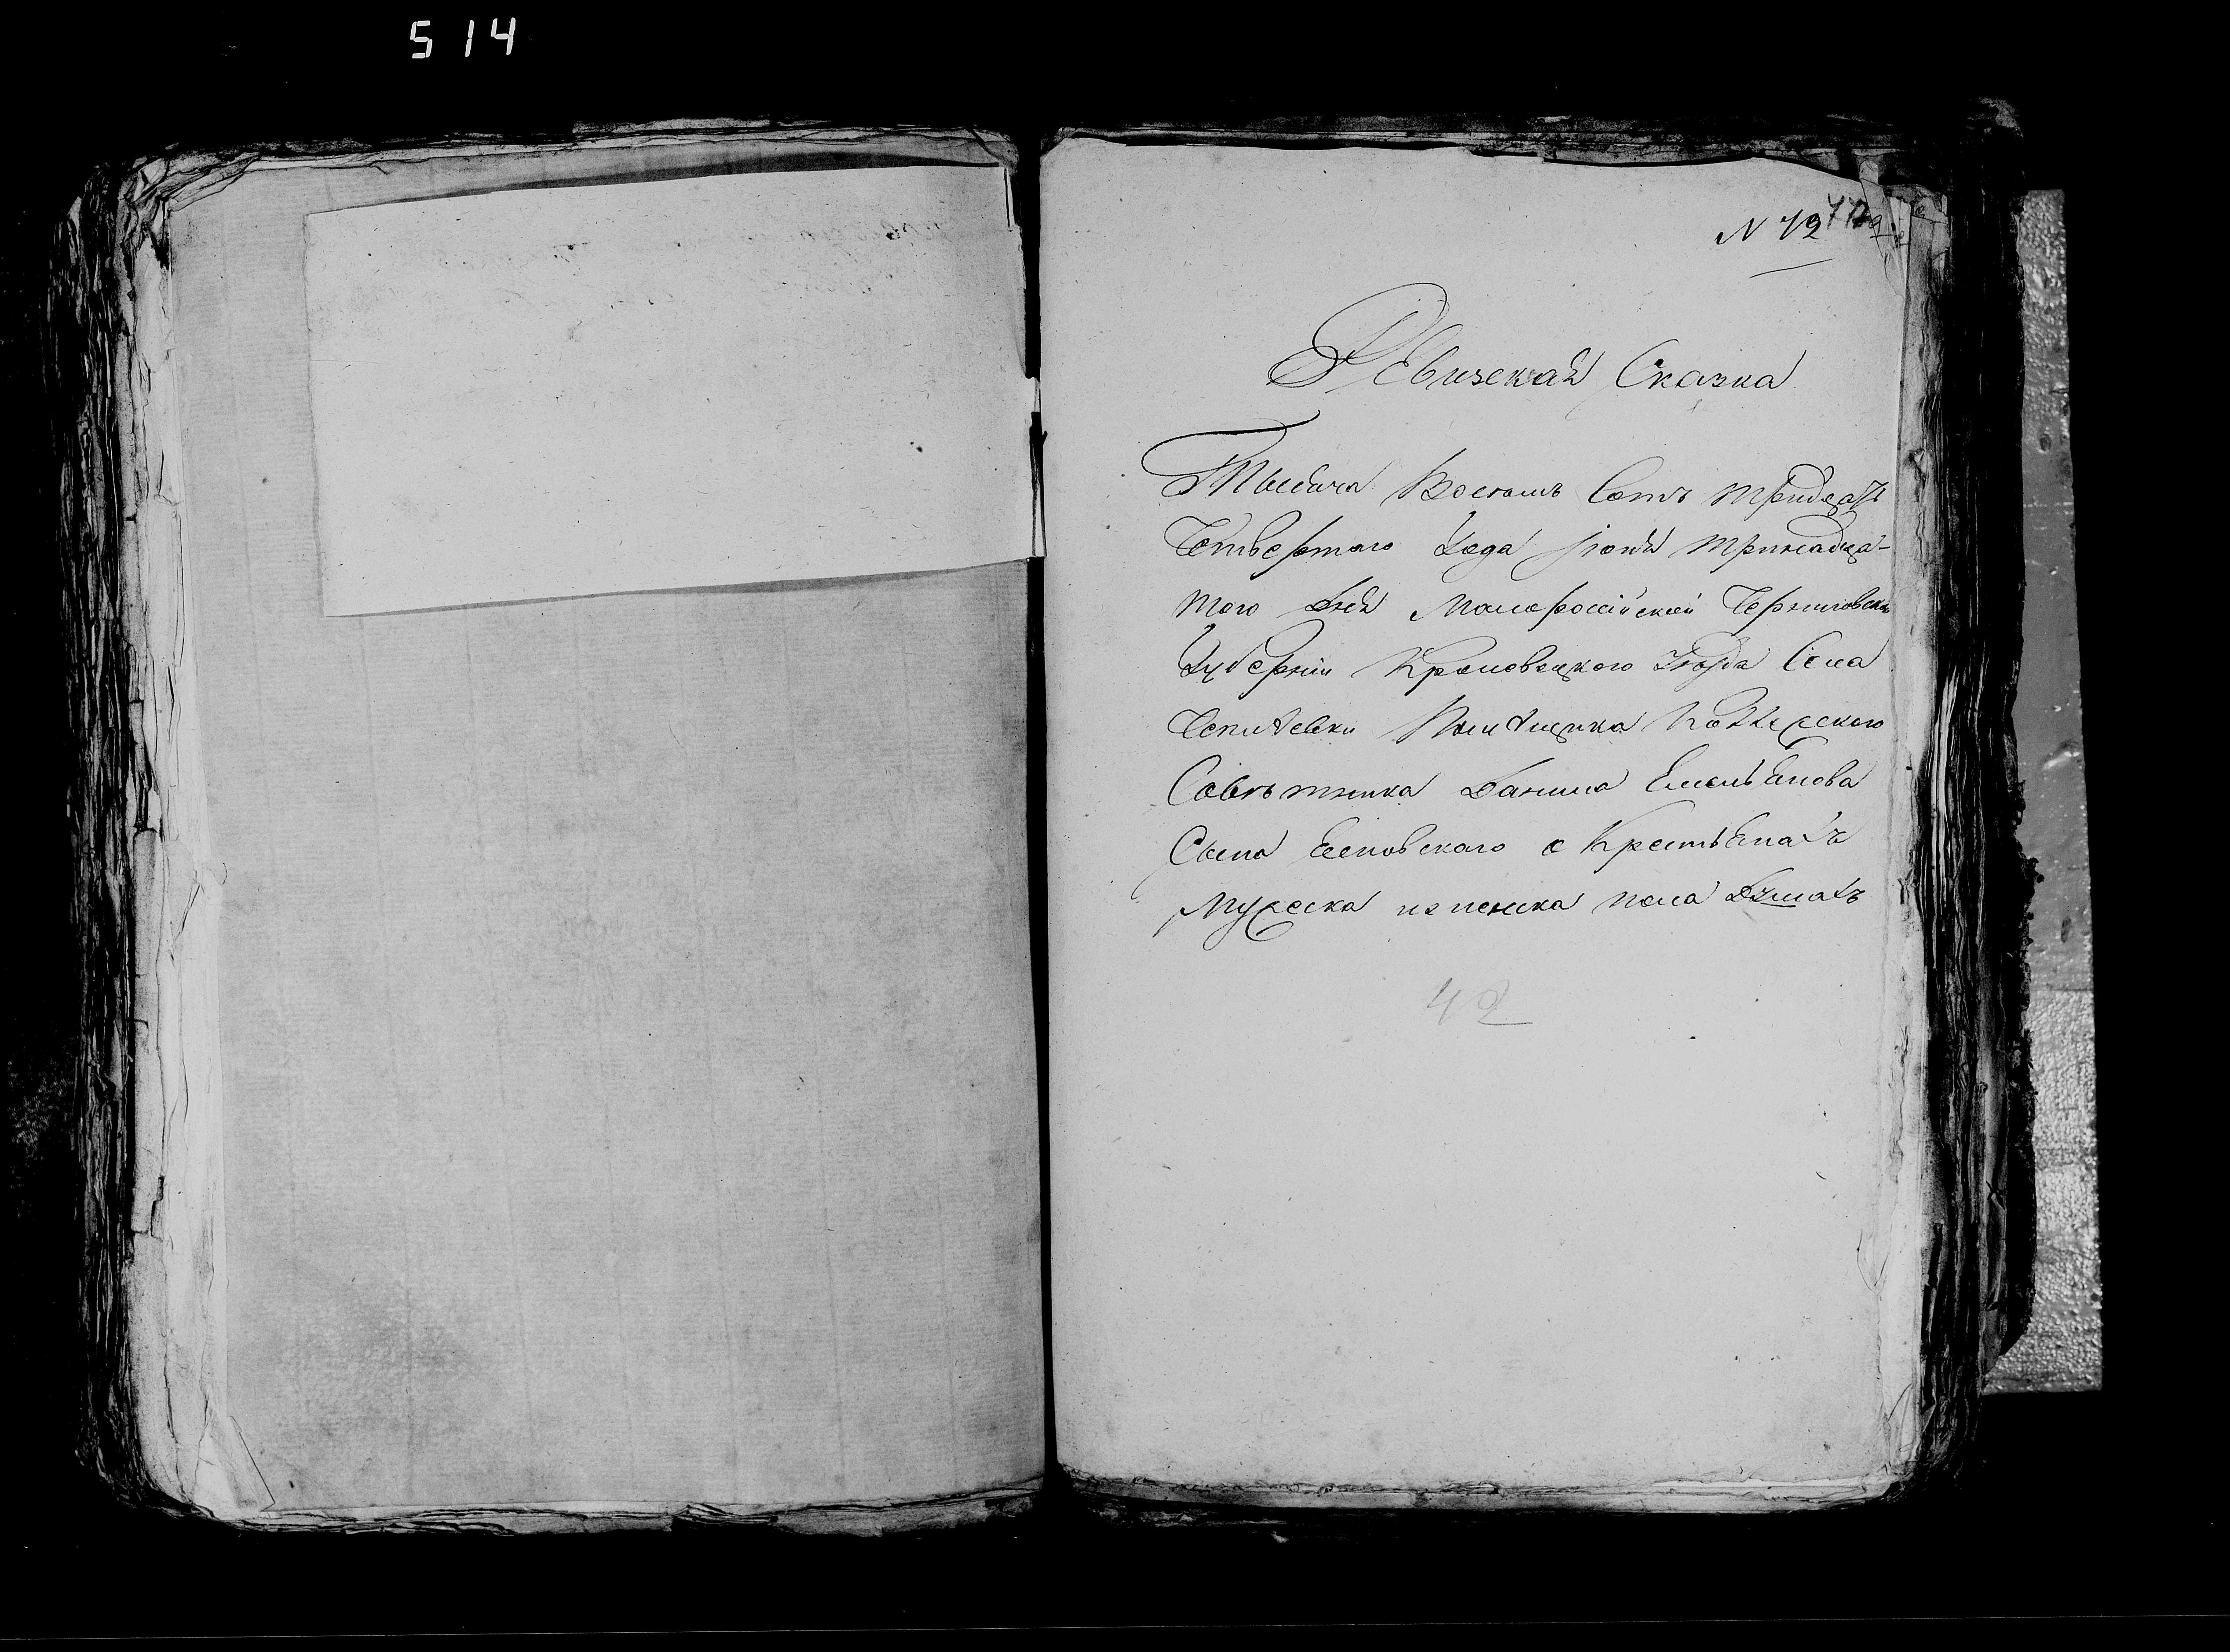 514
N 72
Ревизская Сказка
Тысяча Восемь Сотъ тридцать
Четвертого Года Іюня тринадца-
того Дня Малороссійской Черниговской
Губерніи Кролевецкого Уѣзда Села
Чепліевки Помѣщика Коллежского
Совѣтника Данила Емельянова
Сына о Крестьянахъ
Мужеска и женска пола Душахъ
42